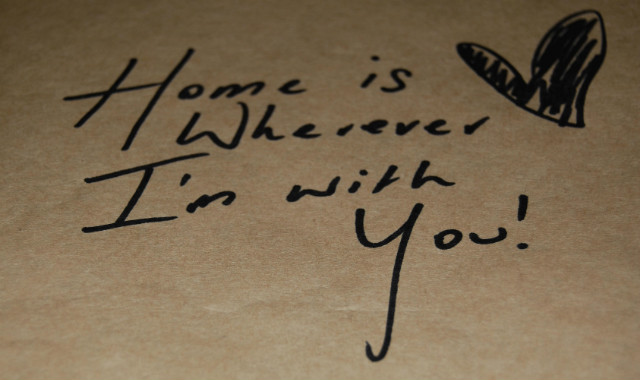 Home is
Wherever
I'm with
You!